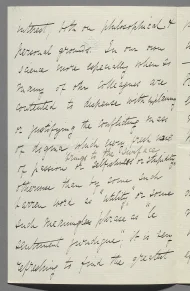 interest, both on philosophical &
personal grounds. In our own
science more especially, when so
many of our colleagues are
contented to dispense with explaining
or justifying the conflicting mass
of dogma which
of passion or selfishness or stupidity
otherwise than by some such
barren word as "utility" or some
such meaningless phrase as "le
sentiment juridique" it is very
refreshing to find the greatest